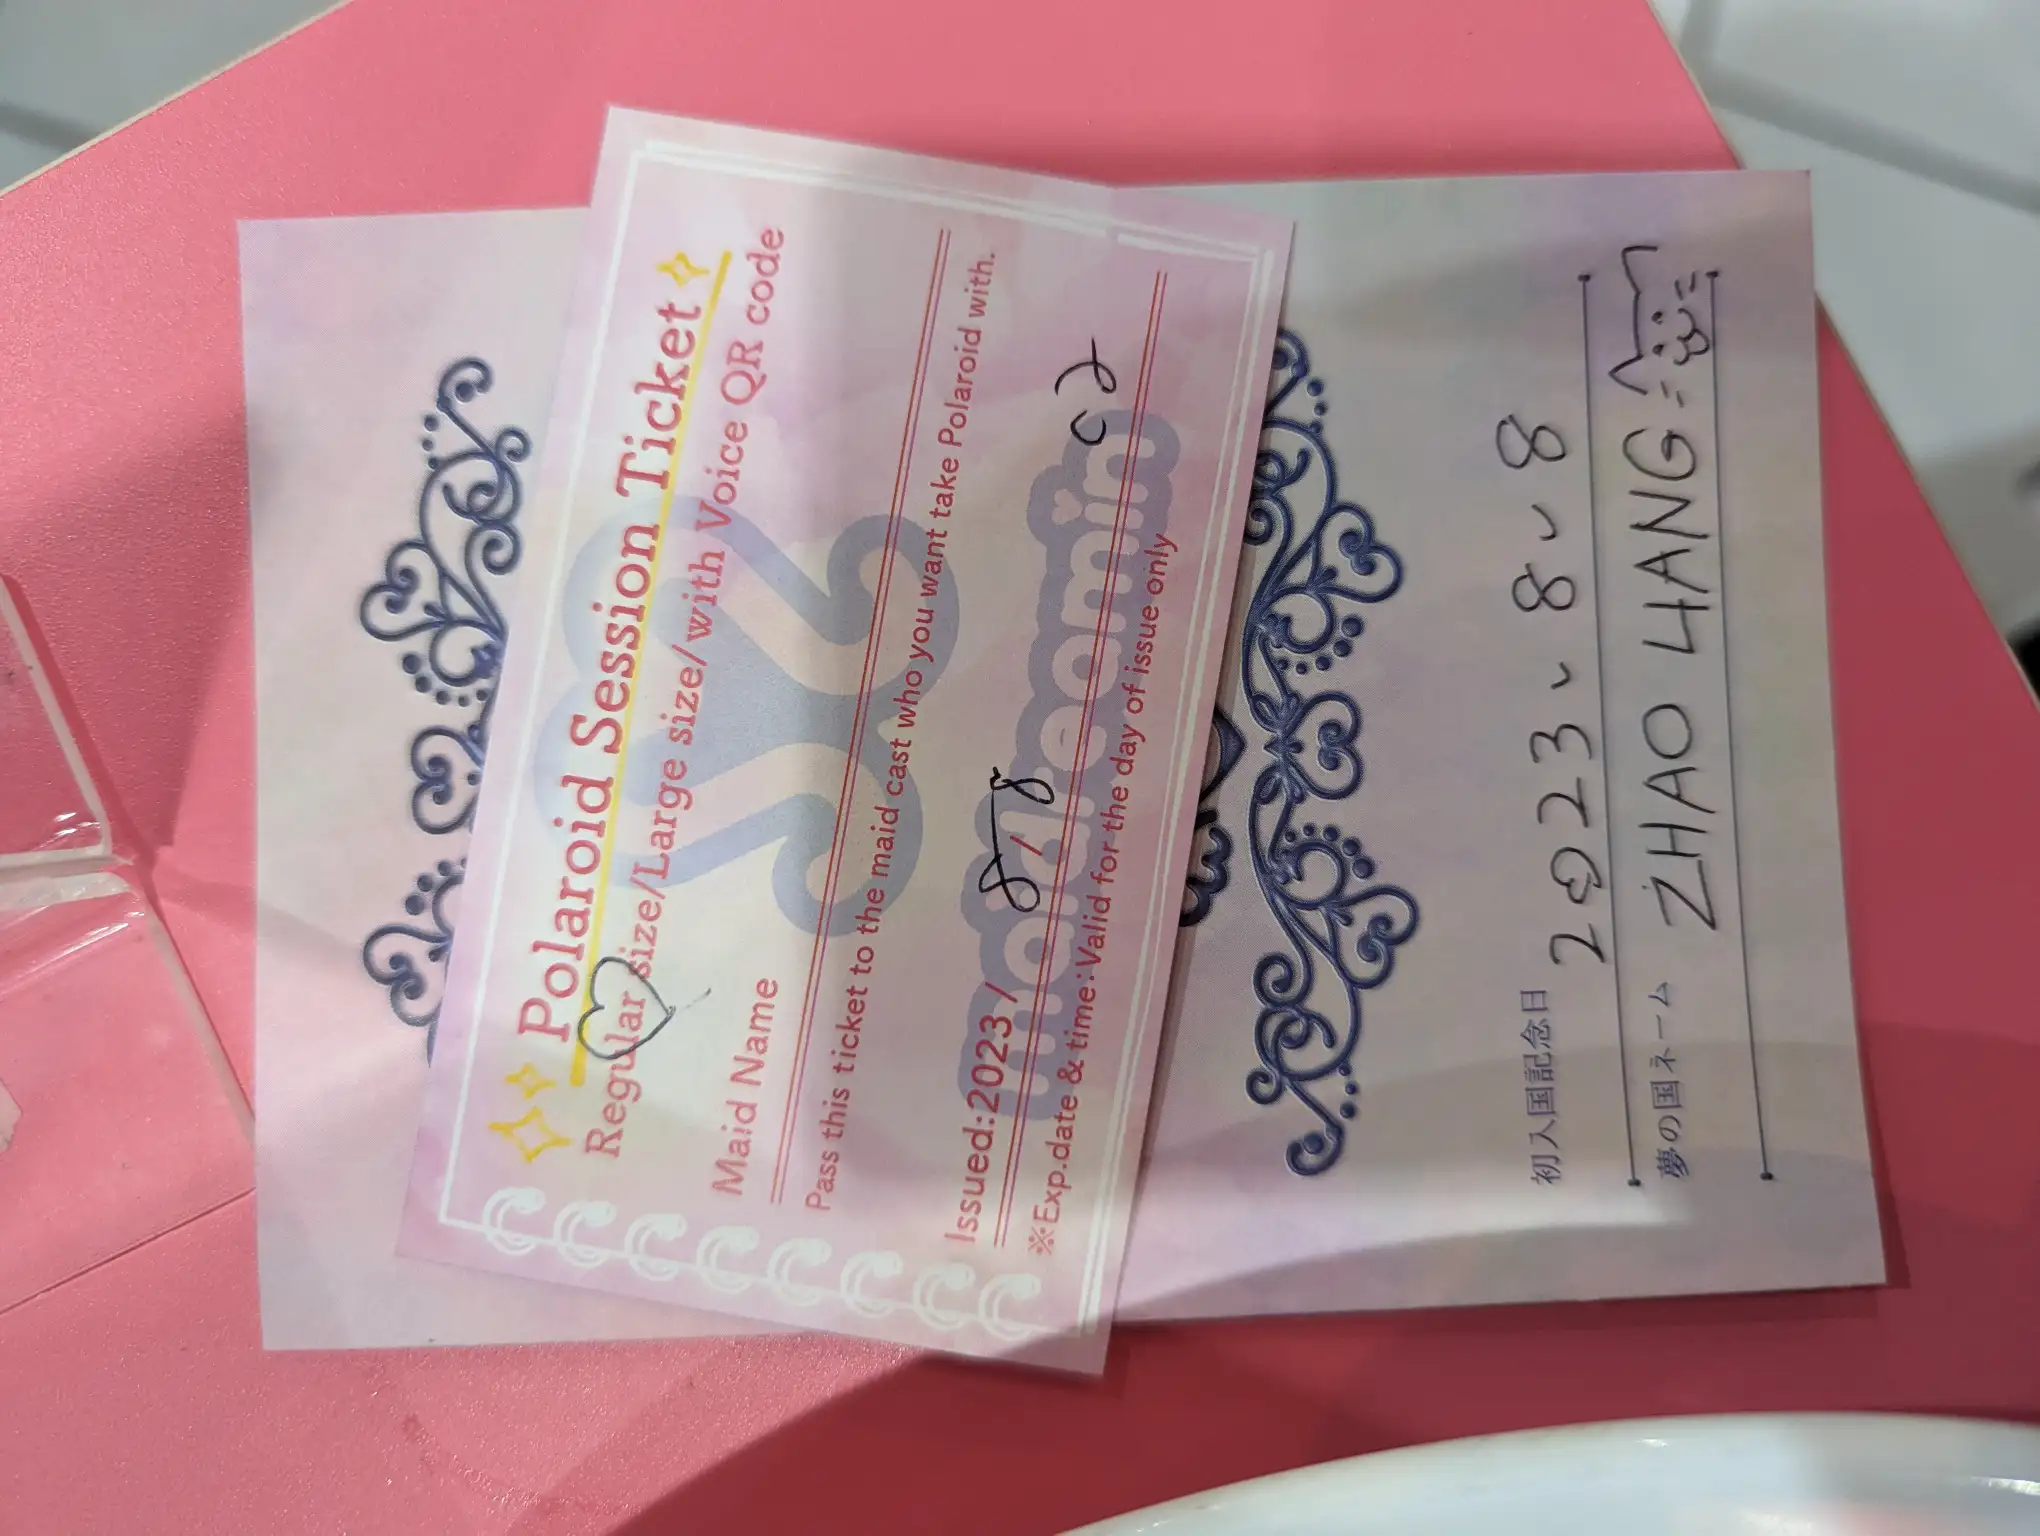 Polaroid Session Ticket
Regular size/Large size/with Voice QR code
Maid Name
Pass this ticket to the maid cast who you want take Polaroid with.
Issued:2023/ 8/8
※Exp.date & time:Valid for the day of issue only
maidreamin
初入国記念日 2023、8、8
夢の国ネーム ZHAO LIANG